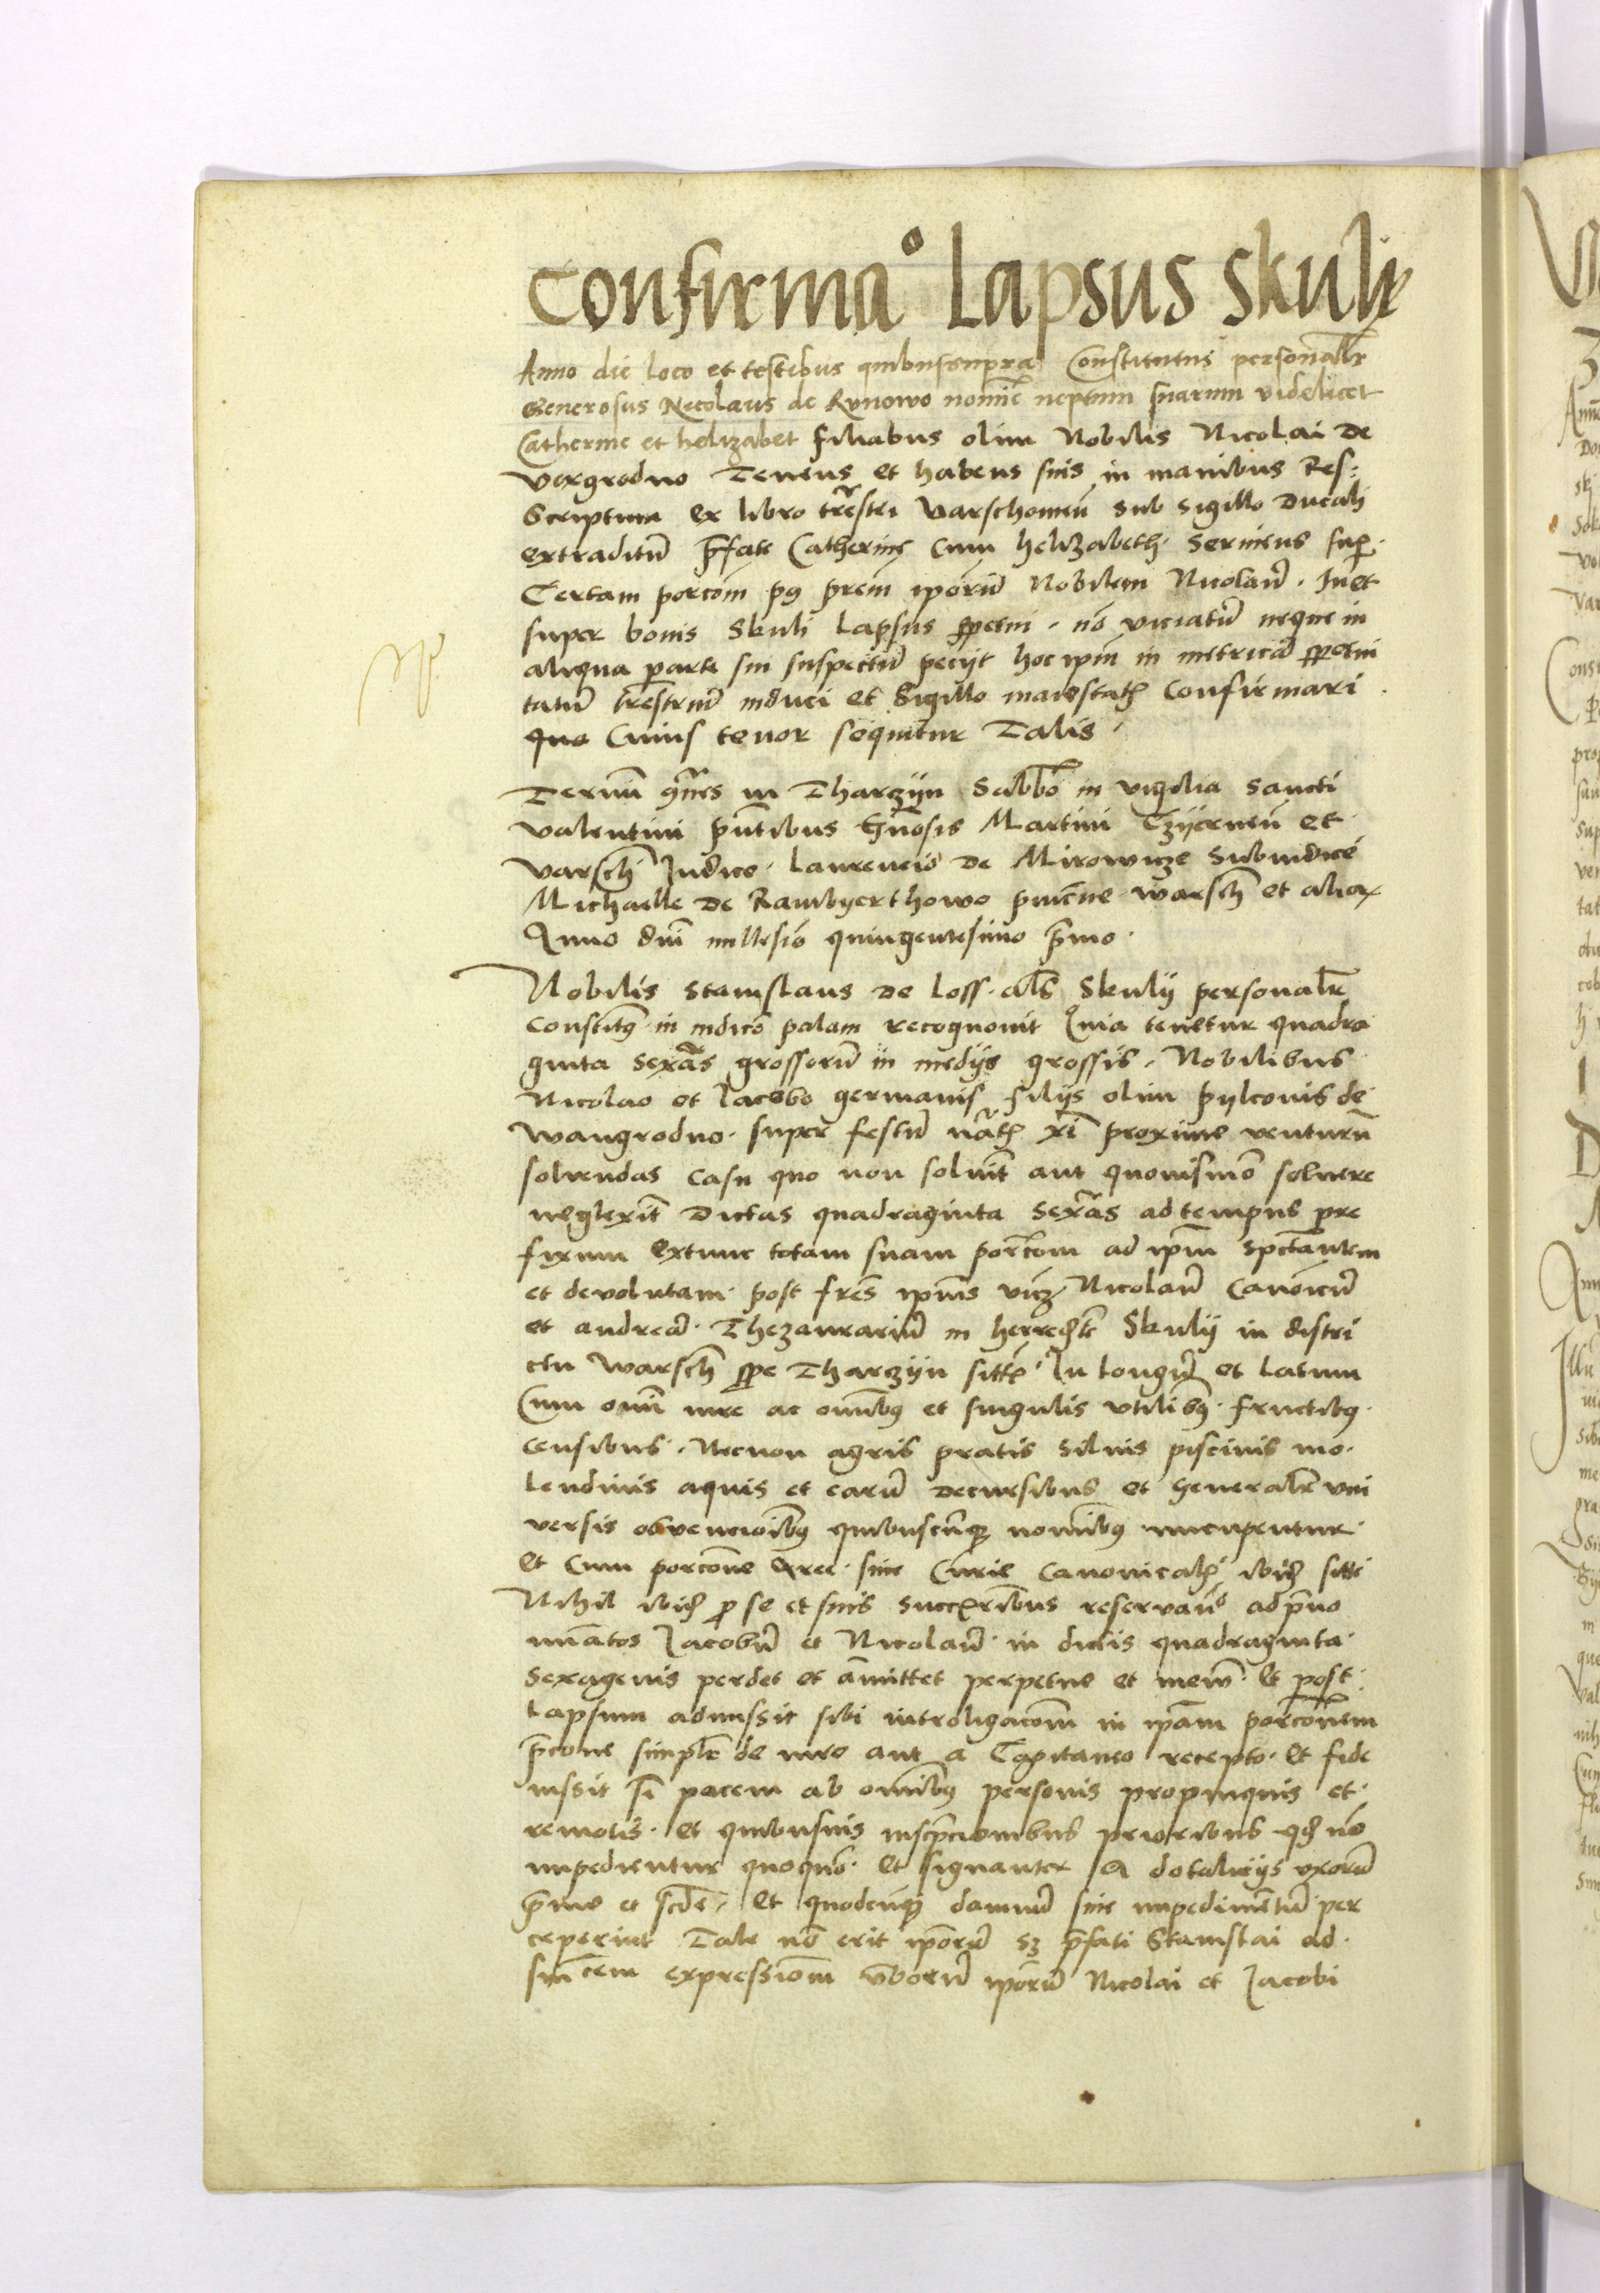 Confirmaᵒ Lapsus Skuly
Anno die loco et testibus quibussupra Constitutus personalr
Generosus Nicolaus de Rynowo nomie neptum suarum videlicet
Catherine et helizabet filiabus olim Nobilis Nicolai de
Vexgrodno Tenens et habens suis in manibus Res:
Scriptum ex libro trestri Varschowien sub sigillo Ducali
extraditu pfate Catherine cum helizabeth Serineus sup
Certam porcom pq prem iporu Nobilem Nicolau. In et
super bonis Skuli Lapsus ppetui. no viciatu neque in
aliqua parte sui suspectu peciit hoc ipm in metrica ppetui
tatu trestriu induci et Sigillo maiestatis confirmari
quo Cuius tenor sequitur Talis
Termi gnres in Tharzyn Sabbo in vigilia Sancti
Valentini pntibus Gnosis Martini Czijrnen et
Varsch Iudice. Laurencio de Mirowicze Subiudice
Michaelle de Rambyerthowo pincne warsch et aliax
Anno dni millesio quingentesimo pmo.
Nobilis Stanislaus de Loss. als Skulij personalr
constitq in iudico palam recognovit Quia tenetur quadra
ginta sexas grossoru in medijs grossis. Nobilibus
Nicolao et Jacobo germanis filijs olim pylconis de
Wangrodno. super festu natis xi proxime venturu
soluendas casu quo non soluit aut quouismo soluere
neglexit Dictas quadraginta sexas ad tempus pre
fixum extunc totam suam portom ad ipm spctantem
et devolutam post fres ipius vicz Nicolau Canonicu
et andrea. Thezaurariu in herredte Skulij in distri
ctu warsch ppe Tharzyn sitte. In longu et latum
Cum omi iure ac omibq et singulis vtilibq. fructibq.
censibus. Necnon agris pratis siluis piscinis mo.
lendinis aquis et earu decursibus et Generalr vni
versis obvencioibq quibuscuqz nomibq nuncupentur.
Et Cum porcone sine Curie Canonicalis ibid sitte
Nihil ibid p se et suis succxribus reservado adpno
minatos Jacobu et Nicolau in dictis quadraginta
sexagenis perdet et amittet perpetue et inew. Et post
Lapsum admissit sibi introligacom in ipam porconem
pcone simple de iure aut a Capitaneo recepto. Et fide
iussit si pacem ab omibq personis propinquis et
remotis. et quibusuis inscpcionibus prioribus qd no
impedientur quoquo. Et signanter A dotalicijs vxoru
pme et scde. Et quodcuqz damnu sine impedimentu per
ceperint Tale no erit iporu sz pfati Stanislai ad
simcem expressiom vboru iporu Nicolai et Jacobi